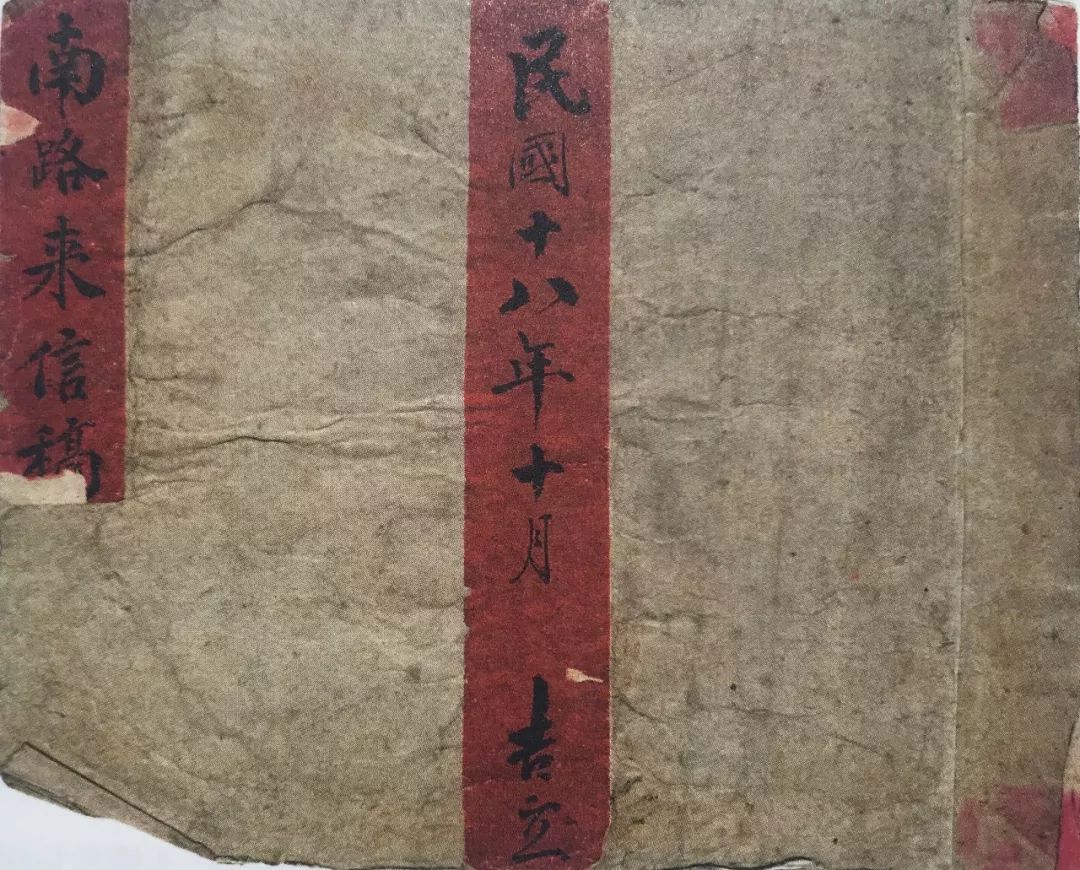 民國十八年十月 吉立
南路来信稿